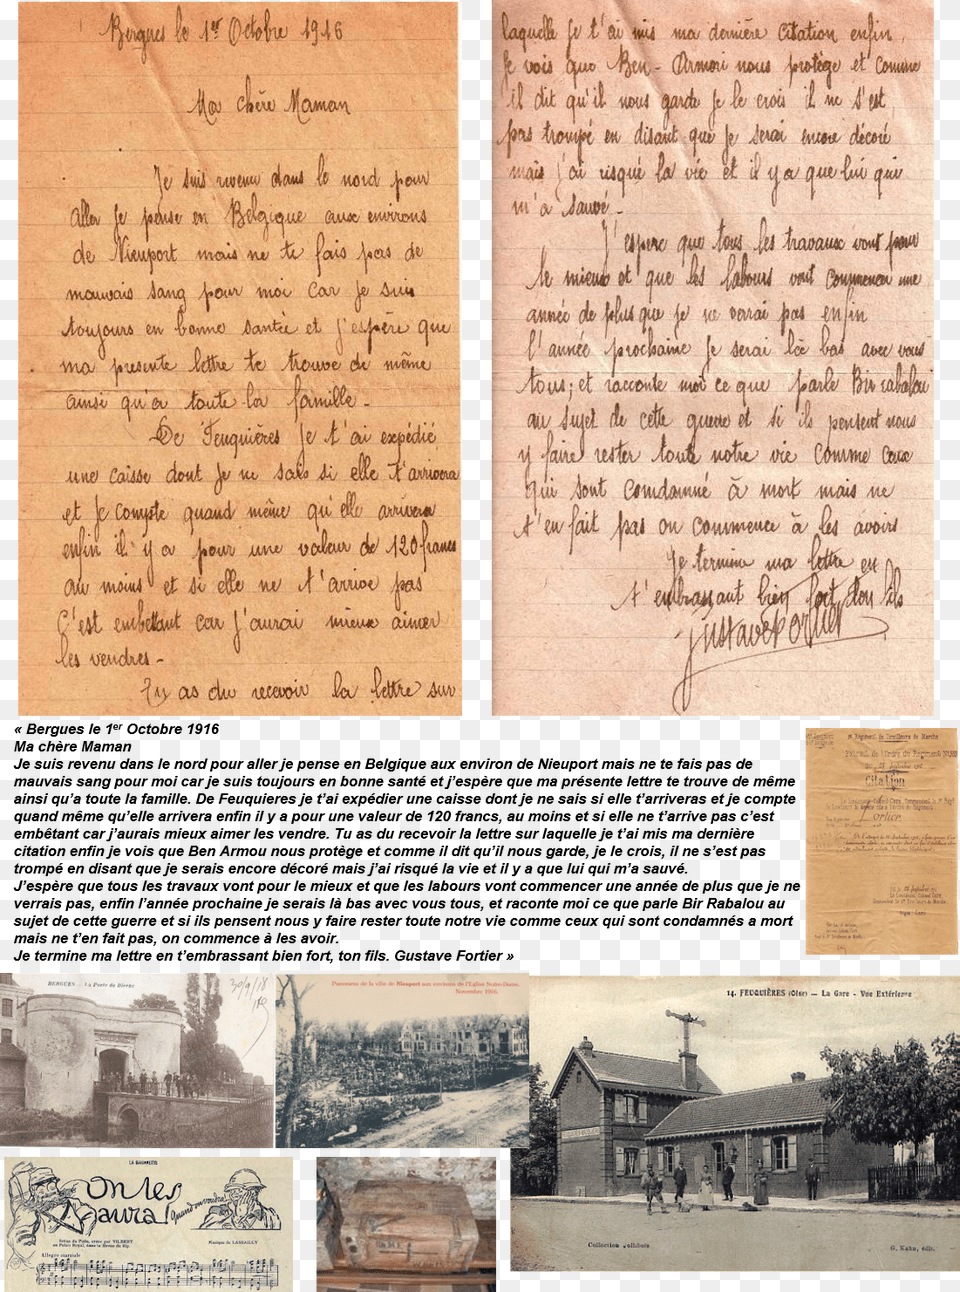 Bergues le 1er Octobre 1916
Ma chère Maman
Je suis revenu dans le nord pour
aller je pense en Belgique aux environs
de Nieuport mais ne te fais pas de
mauvais sang pour moi car je suis
toujours en bonne santée et j'espère que
ma présente lettre te trouve de même
ainsi qu'a toute la famille -
De Feuquières je t'ai expédié
une caisse dont je ne sais si elle t'arrivera
et je compte quand même qu'elle arrivera
enfin il y a pour une valeur de 120 francs
au moins et si elle ne t'arrive pas
c'est embettant car j'aurai mieux aimer
les vendres -
Tu as du recevoir la lettre sur
laquelle je t'ai mis ma dernière citation enfin
je vois que Ben-Armori nous protège et comme
il dit qu'il nous garde je le crois il ne s'est
pas trompé en disant que je serai encore décoré
mais j'ai risqué la vie et il y a que lui qui
m'a sauvé -
J'espère que tous les travaux vont pour
le mieux et que les labours vont commencer une
année de plus que je ne verai pas enfin
l'année prochaine je serai là bas avec vous
tous; et raconte moi ce que parle Bir rabalou
au sujet de cette guerre et si ils pensent nous
y faire rester toute notre vie comme ceux
qui sont comdamné à mort mais ne
t'en fait pas on commence à les avoirs
Je termine ma lettre en
t'embrassant bien fort ton fils
Gustave Fortier
« Bergues le 1er Octobre 1916
Ma chère Maman
Je suis revenu dans le nord pour aller je pense en Belgique aux environ de Nieuport mais ne te fais pas de
mauvais sang pour moi car je suis toujours en bonne santé et j'espère que ma présente lettre te trouve de même
ainsi qu'a toute la famille. De Feuquieres je t'ai expédier une caisse dont je ne sais si elle t'arriveras et je compte
quand même qu'elle arrivera enfin il y a pour une valeur de 120 francs, au moins et si elle ne t'arrive pas c'est
embêtant car j'aurais mieux aimer les vendre. Tu as du recevoir la lettre sur laquelle je t'ai mis ma dernière
citation enfin je vois que Ben Armou nous protège et comme il dit qu'il nous garde, je le crois, il ne s'est pas
trompé en disant que je serais encore décoré mais j'ai risqué la vie et il y a que lui qui m'a sauvé.
J'espère que tous les travaux vont pour le mieux et que les labours vont commencer une année de plus que je ne
verrais pas, enfin l'année prochaine je serais là bas avec vous tous, et raconte moi ce que parle Bir Rabalou au
sujet de cette guerre et si ils pensent nous y faire rester toute notre vie comme ceux qui sont condamnés a mort
mais ne t'en fait pas, on commence à les avoir.
Je termine ma lettre en t'embrassant bien fort, ton fils. Gustave Fortier »
Régiment de Tirailleurs de Marche
Citation
Fortier
BERGUES - La Porte de Bierne
30/9/18
Panorama de la ville de Nieuport aux environs de l'Eglise Notre-Dame.
Novembre 1916.
14. FEUQUIÈRES (Oise) - La Gare - Vue Extérieure
Collection
G. Kahn, édit.
On les aura! Quand on voudra!
Musique de
Allegro marziale